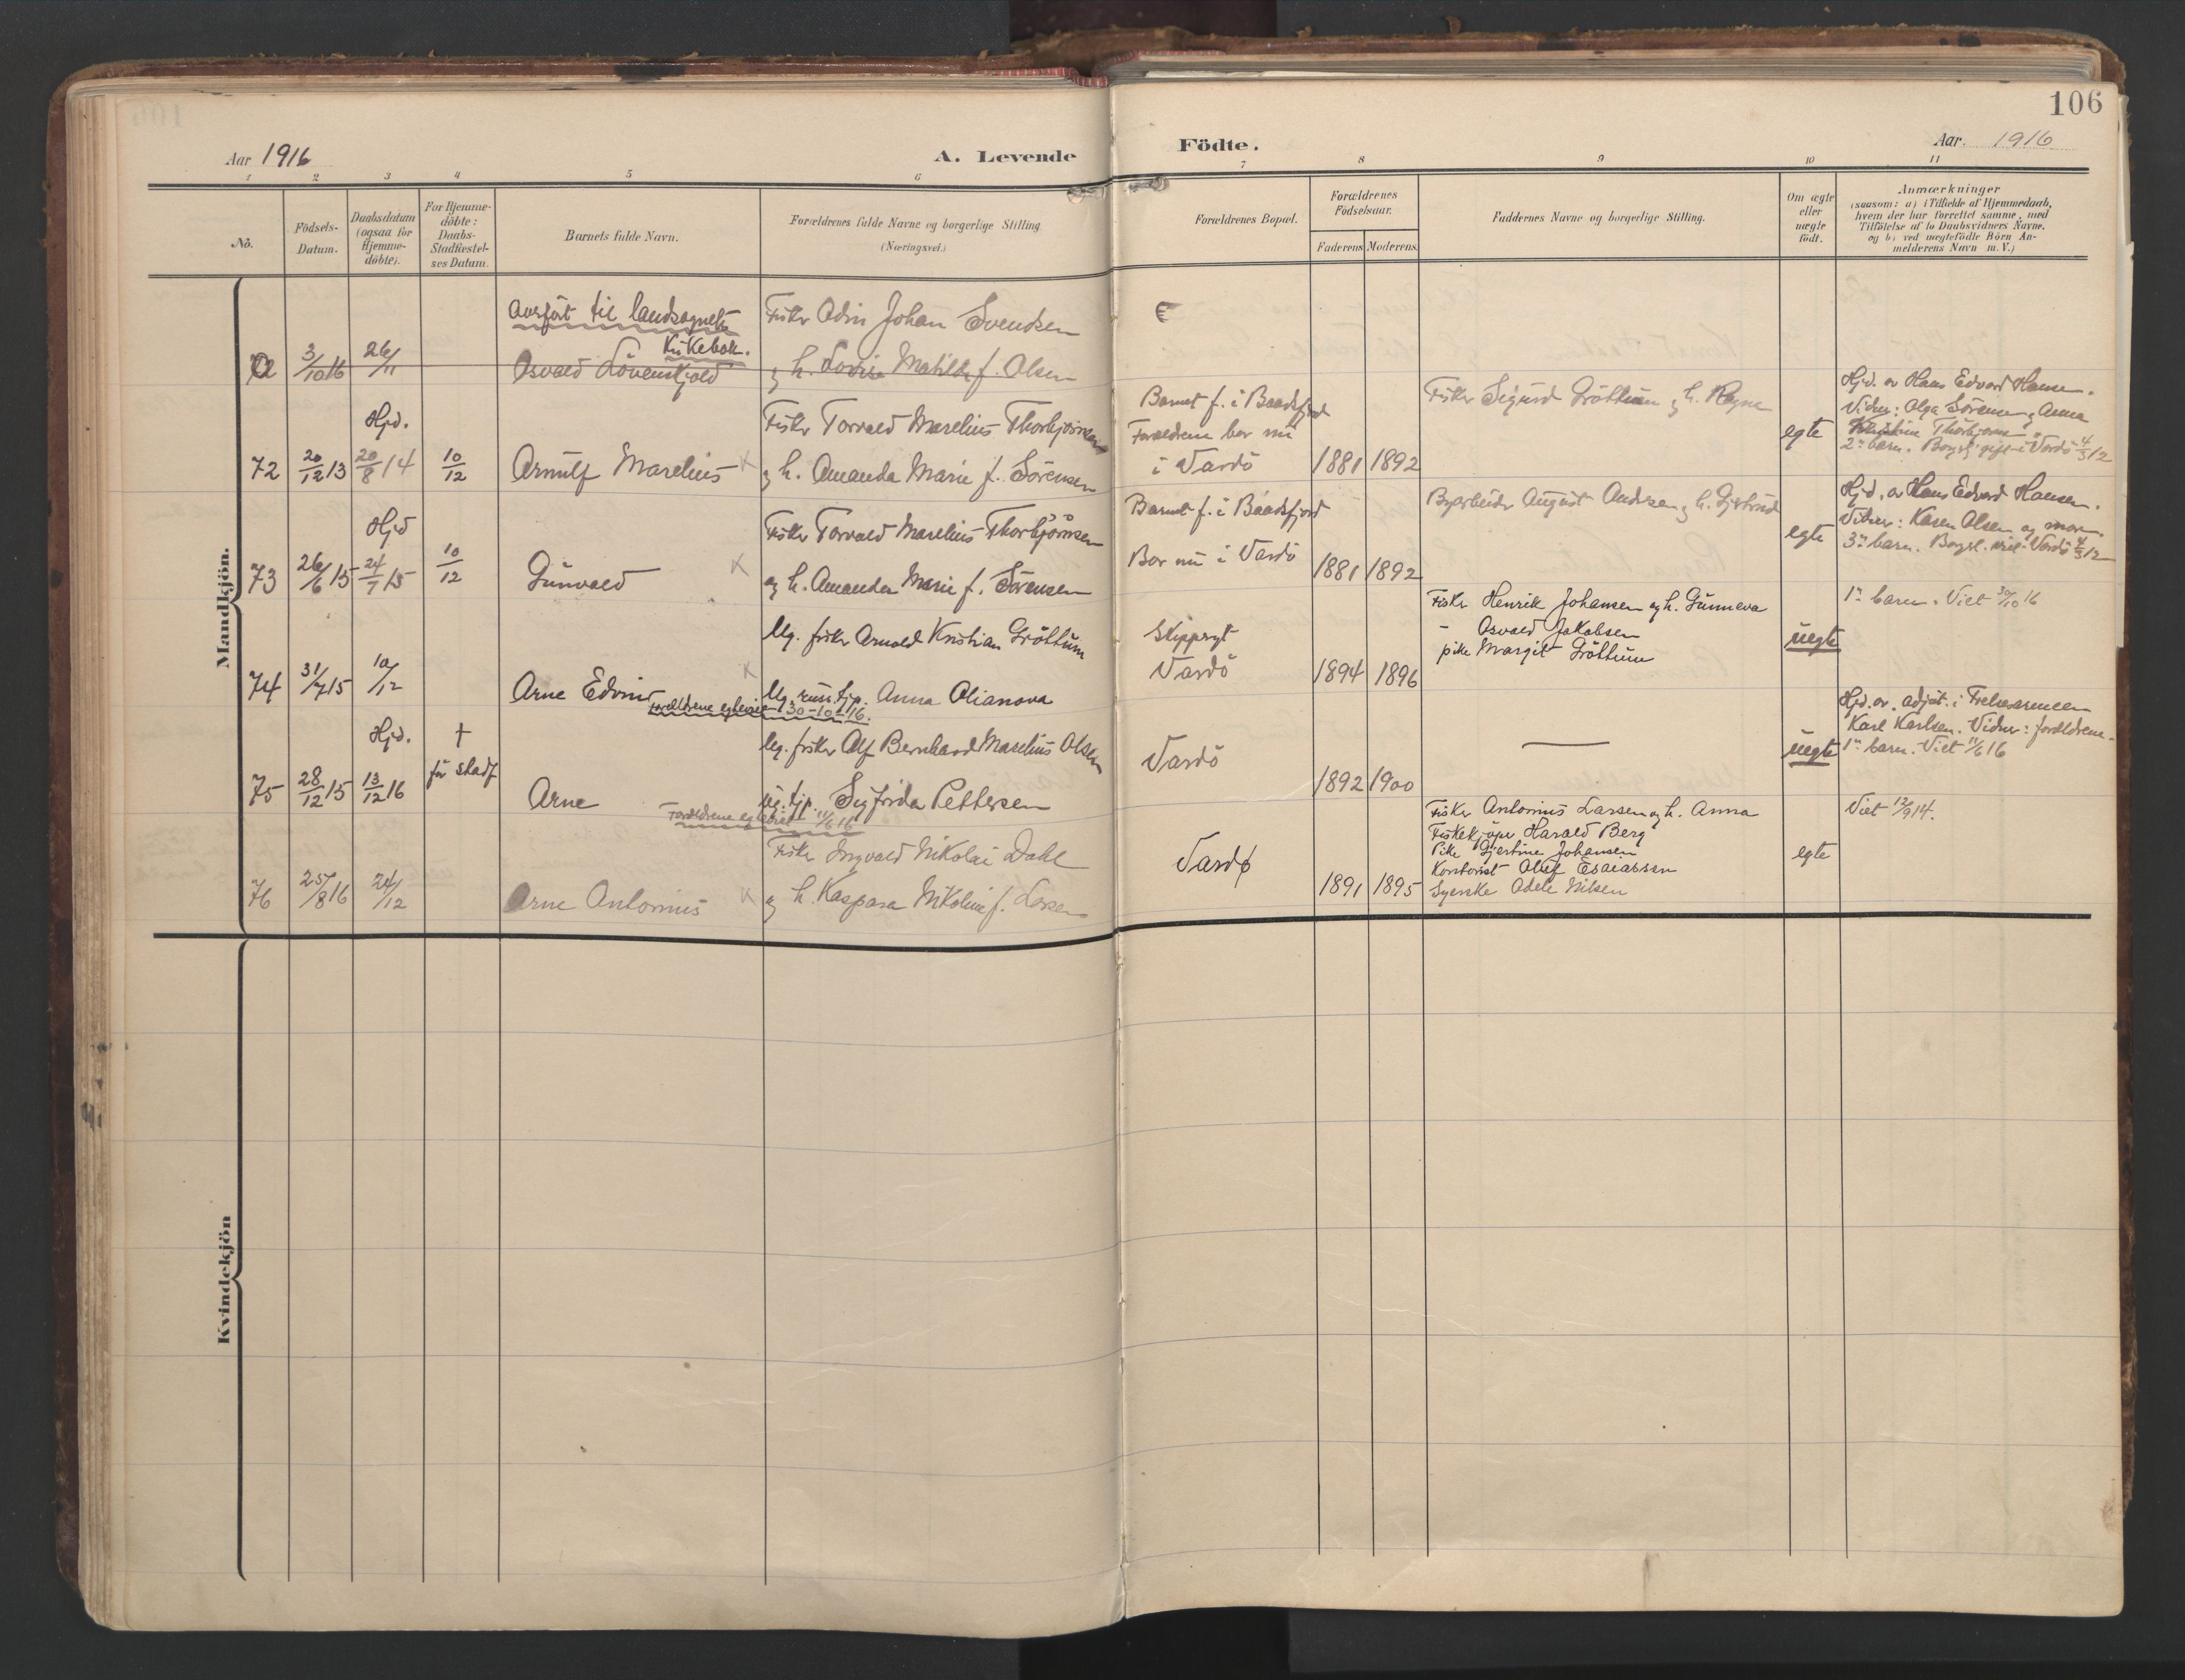 106
Aar 1916
A. Levende
Födte.
Aar. 1916
1 2 3 4 5 6 7 8 9 10 11
No.
Födsels-
Datum.
Daabsdatum
(ogsaa for
Hjemme-
döbte).
For Hjemme-
döbte:
Daabs-
Stadfæstel-
ses Datum.
Barnets fulde Navn.
Forældrenes fulde Navne og borgerlige Stilling
(Næringsvei.)
Forældrenes Bopæl.
Forældrenes
Födselsaar.
Faderens.
Moderens.
Faddernes Navne og borgerlige Stilling.
Om ægte
eller
uægte
födt.
Anmærkninger
(saasom: a) i Tilfælde af Hjemmedaab,
hvem der har forrettet samme, med
Tilföielse af to Daabsvidners Navne.
og b) ved uægtefödte Börn An-
melderens Navn m. V.)
Mandkjön.
Overført til landsognets
Kirkebok.
3/10 16
26/11
Osvald Lövenskjold
Fisker Odin Johan Svendsen
og h. Lovise Matilde f. Olsen
72
20/12 13
Hjd.
20/8 14
10/12
Arnulf Marelius
Fisker Torvald Marelius Thorbjörnsen
og h. Amanda Marie f. Sörensen
Barnet f. i Baadsfjord
Foreldrene bor nu
i Vardö
1881
1892
Fisker Sigurd Gröttum og h. Ragna
egte
Hjd. av Hans Edvard Hansen.
Vidner: Olga Sörensen og Anna
Thorbjörnsen
2n barn. Borgerl. gift i Vardö 4/3 12
73
26/6 15
Hjd
24/7 15
10/12
Gunvald
Fisker Torvald Marelius Thorbjörnsen
og h. Amanda Marie f. Sörensen
Barnet f. i Baadsfjord
Bor nu i Vardö
1881
1892
Byarbeider August Andersen og h. Gjertrud
egte
Hjd. av Hans Edvard Hansen.
Vidner: Karen Olsen og mor.
3n barn. Borgl. viet i Vardö 4/3 12
74
31/7 15
10/12
Arne Edvin
Foreldrene egteviet 30-10-16.
Ug. fisker Arnold Kristian Gröttum
Ug. russ. tjp. Anna Olianova
Skippagt
Vardö
1894
1896
Fisker Henrik Johansen og h. Gunneva
- Osvald Jakobsen
pike Margit Gröttum
uegte
1n barn. Viet 30/10 16
75
28/12 15
Hjd.
13/12 16
†
før stadf
Arne
Foreldrene egteviet 11/6 16
Ug. fisker Alf Bernhard Marelius Olsen
ug. tjp. Sigfrida Pettersen
Vardö
1892
1900
uegte
Hjd. av. adjut. i Frelsesarmeen
Karl Karlsen. Vidner: foreldrene.
1n barn. Viet 11/6 16
76
25/8 16
24/12
Arne Antonius
Fisker Ingvald Nikolai Dahl
og h. Kaspara Nikoline f. Larsen
Vardø
1891
1895
Fisker Antonius Larsen og h. Anna
Fiskekjöper Harald Berg
Pike Gjertine Johansen
Kontorist Olaf Esaiassen
Syerske Adele Nilsen
egte
Viet 12/9 14.
Kvindekjön